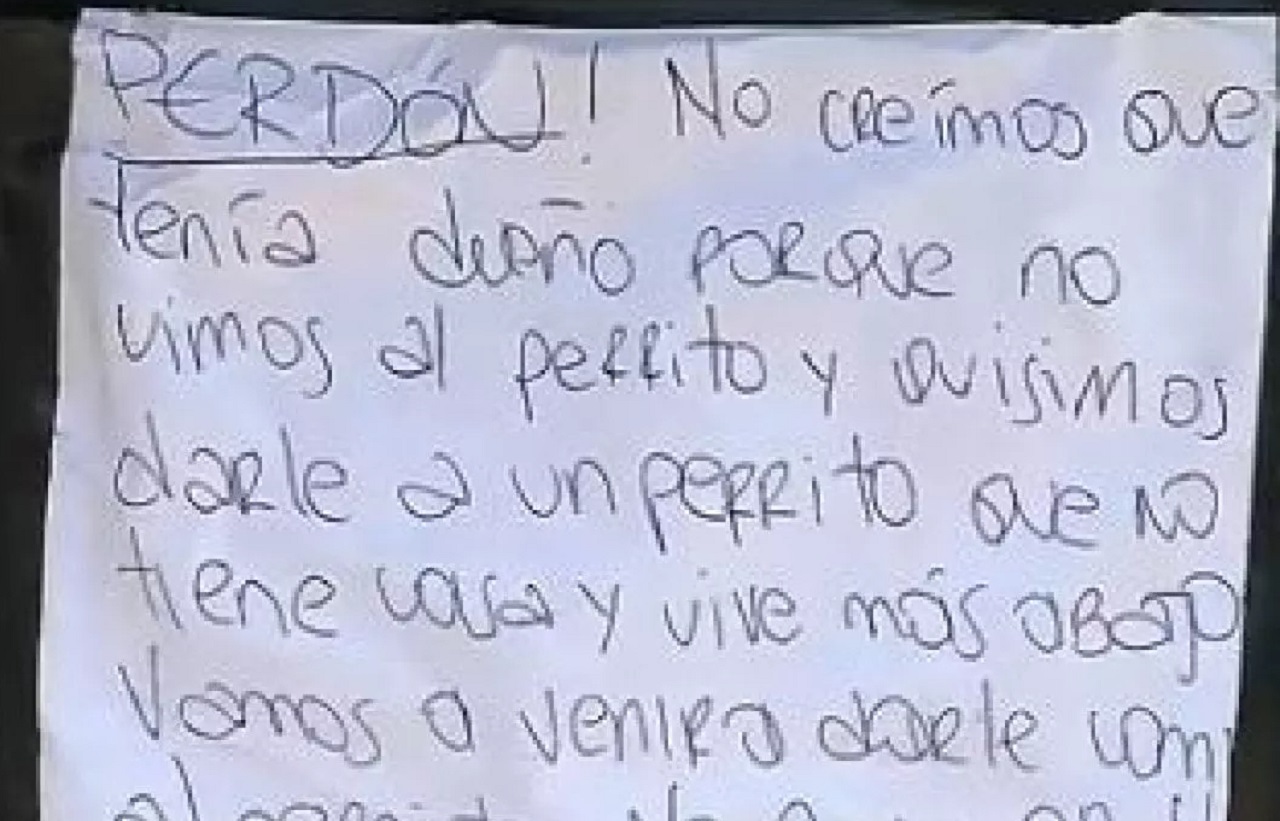 PERDÓN! No creímos que
tenía dueño porque no
vimos al perrito y quisimos
darle a un perrito que no
tiene casa y vive más abajo
Vamos a venir a darle com
al